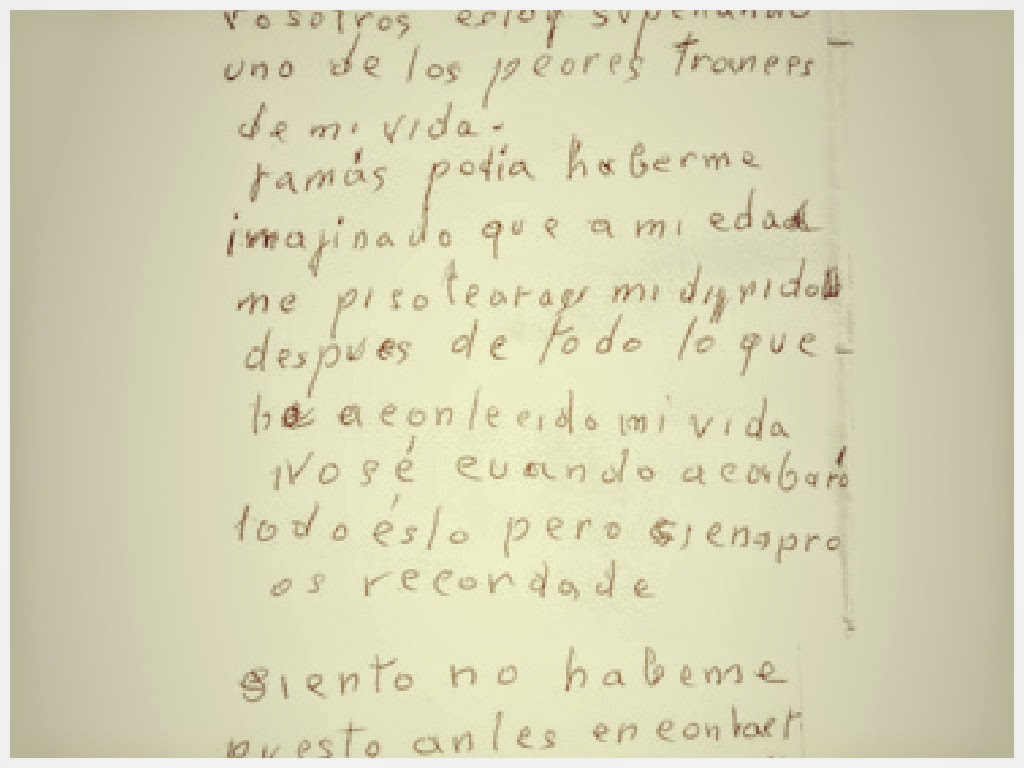 vosotros estoy superando
uno de los peores trances
de mi vida-
Jamás podia haberme
imajinado que a mi edad
me pisotearaes mi dignidad
despues de todo lo que
ha acontecido mi vida
No sé cuando acabará
todo ésto pero siempre
os recordade
siento no habeme
puesto antes en contact